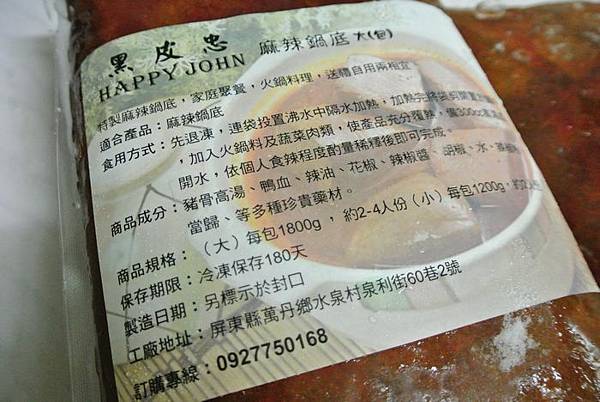 黑皮忠 麻辣鍋底 大(包)
HAPPY JOHN
特製麻辣鍋底，家庭聚餐，火鍋料理，送禮自用兩相宜。
適合產品：麻辣鍋底
食用方式：先退凍，連袋投置沸水中隔水加熱，加熱完將袋剪開
，加入火鍋料及蔬菜肉類，使產品充分覆辣，備300cc
開水，依個人食辣程度酌量稀釋後即可完成。
商品成分：豬骨高湯、鴨血、辣油、花椒、辣椒醬、胡椒、水、
當歸、等多種珍貴藥材。
商品規格：（大）每包1800g，約2-4人份（小）每包1200g，約
保存期限：冷凍保存180天
製造日期：另標示於封口
工廠地址：屏東縣萬丹鄉水泉村泉利街60巷2號
訂購專線：0927750168